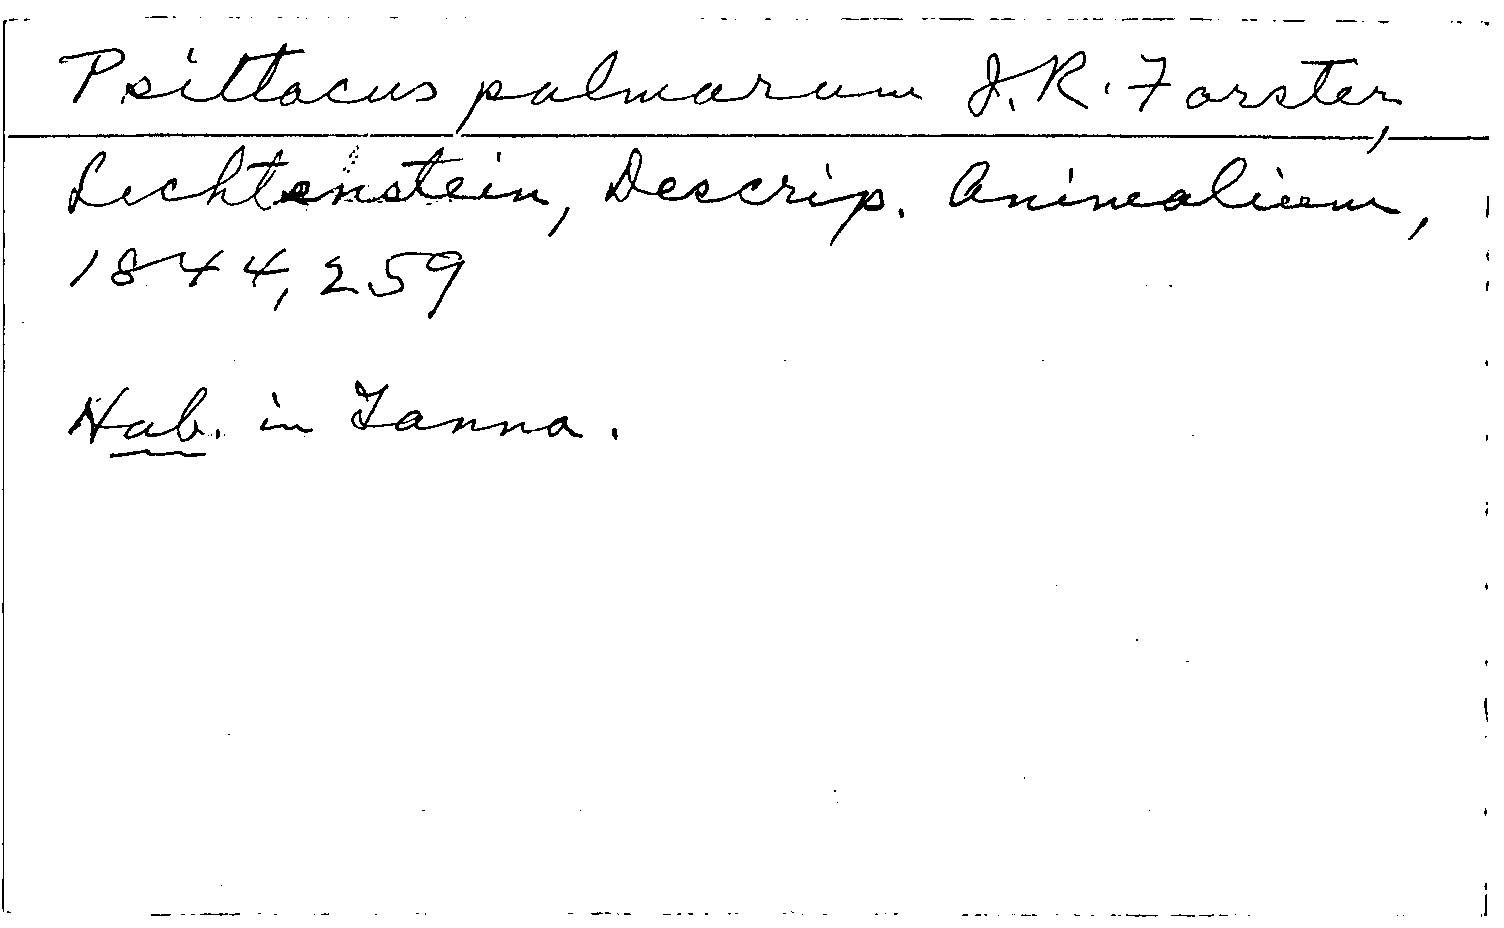 Psittacus palmarum J. R. Forster,
Lichtenstein, Descrip. Animalium,
1844, 259
Hab. in Tanna.